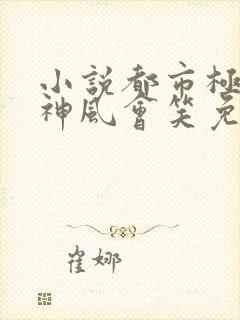 小説都市極
神風會笑免
崔娜